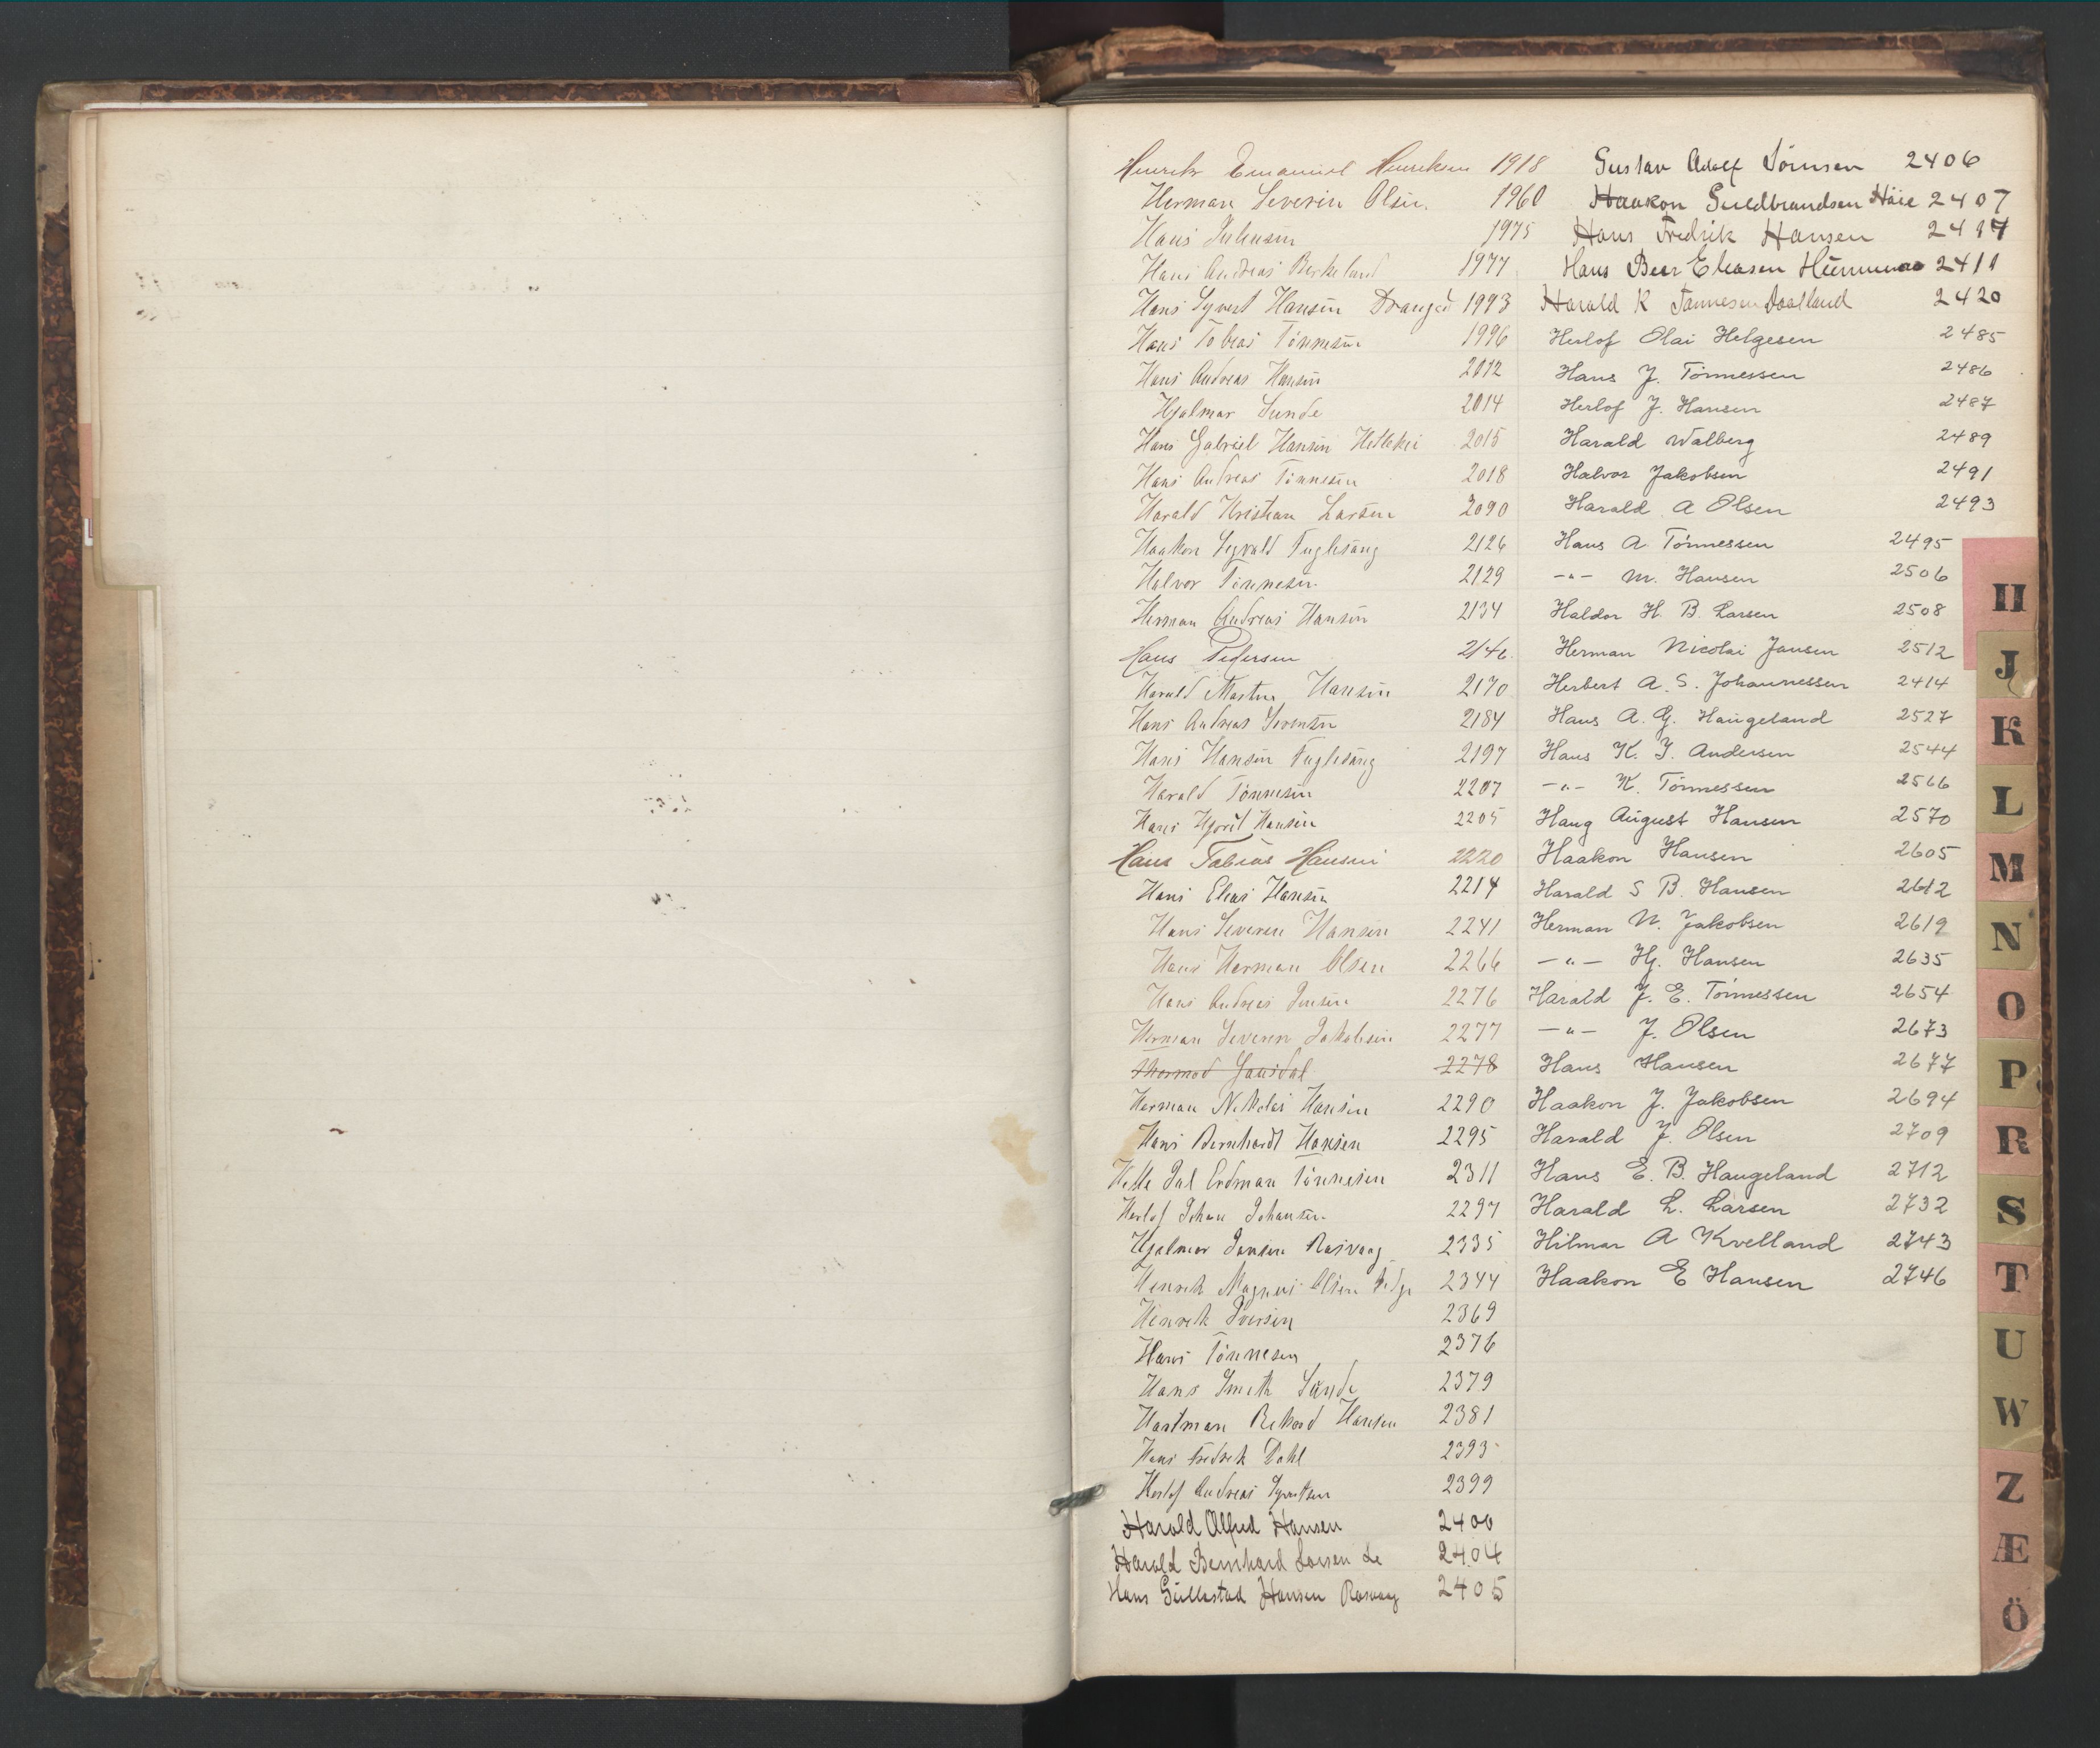 Henrik Emanuel Henriksen 1918
Herman Severin Olsen. 1960
Hans Juliusen 1975
Hans Andreas Berkeland 1977
Hans Syvert Hansen Dranged 1993
Hans Tobias Tönnesen 1996
Hans Andreas Hansen 2012
Hjalmar Sunde 2014
Hans Gabriel Hansen 2015
Hans Andreas Tönnesen 2018
Harald Kristian Larsen 2090
Haakon Sigvald Fuglesang 2126
Halvor Tönnesen 2129
Herman Andreas Hansen 2134
Hans Pedersen 2146
Harald Martin Hansen 2170
Hans Andreas Sorensen 2184
Hans Hansen Fuglesang 2197
Harald Tönnesen 2207
Hans Hjorit Hansen 2205
Hans Tobias Hansen 2220
Hans Elias Hansen 2214
Hans Severin Hansen 2241
Hans Herman Olsen 2266
Hans Andreas Jensen 2276
Herman Severin Jakobsen 2277
Thormod Gausdal 2278
Herman Nikolai Hansen 2290
Hans Bernhardt Hansen 2295
Erdman Tönnesen 2311
Herlof Johan Johansen 2297
Hjalmar Jansen Rasvaag 2335
Henrik Magnus Olsen 2344
Henrik Iversen 2369
Hans Tönnesen 2376
Hans Smith Sunde 2379
Hartman Rikard Hansen 2381
Hans Fredrik Dahl 2393
Herlof Andreas Syvertsen 2399
Harald Alfred Hansen 2400
Harald Bernhard Larsen 2404
Hans Gullestad Hansen Rasvaag 2405
Gustav Adolf Jörnsen 2406
Haakon Guldbrandsen Häie 2407
Hans Fredrik Hansen 2417
Hans Beer Eleasen 2411
Harald K Tønnesen Daatland 2420
Herlof Olai Helgesen 2485
Hans J. Tönnessen 2486
Herlof J. Hansen 2487
Harald Walberg 2489
Halvor Jakobsen 2491
Harald A Olsen 2493
Hans A. Tönnessen 2495
-"- M. Hansen 2506
Haldor H. B. Larsen 2508
Herman Nicolai Jansen 2512
Herbert A. S. Johannessen 2414
Hans A. G. Haugeland 2527
Hans K. J. Andersen 2544
-"- K. Tönnessen 2566
Hang August Hansen 2570
Haakon Hansen 2605
Harald S B. Hansen 2612
Herman N. Jakobsen 2619
-"- Hj. Hansen 2635
Harald J. E. Tönnessen 2654
-"- J. Olsen 2673
Hans Hansen 2677
Haakon J. Jakobsen 2694
Harald J. Olsen 2709
Hans E. B. Haugeland 2712
Harald L. Larsen 2732
Hilmar A Kvelland 2743
Haakon E Hansen 2746
H
J
K
L
M
N
O
P
R
S
T
U
W
Z
Æ
Ö